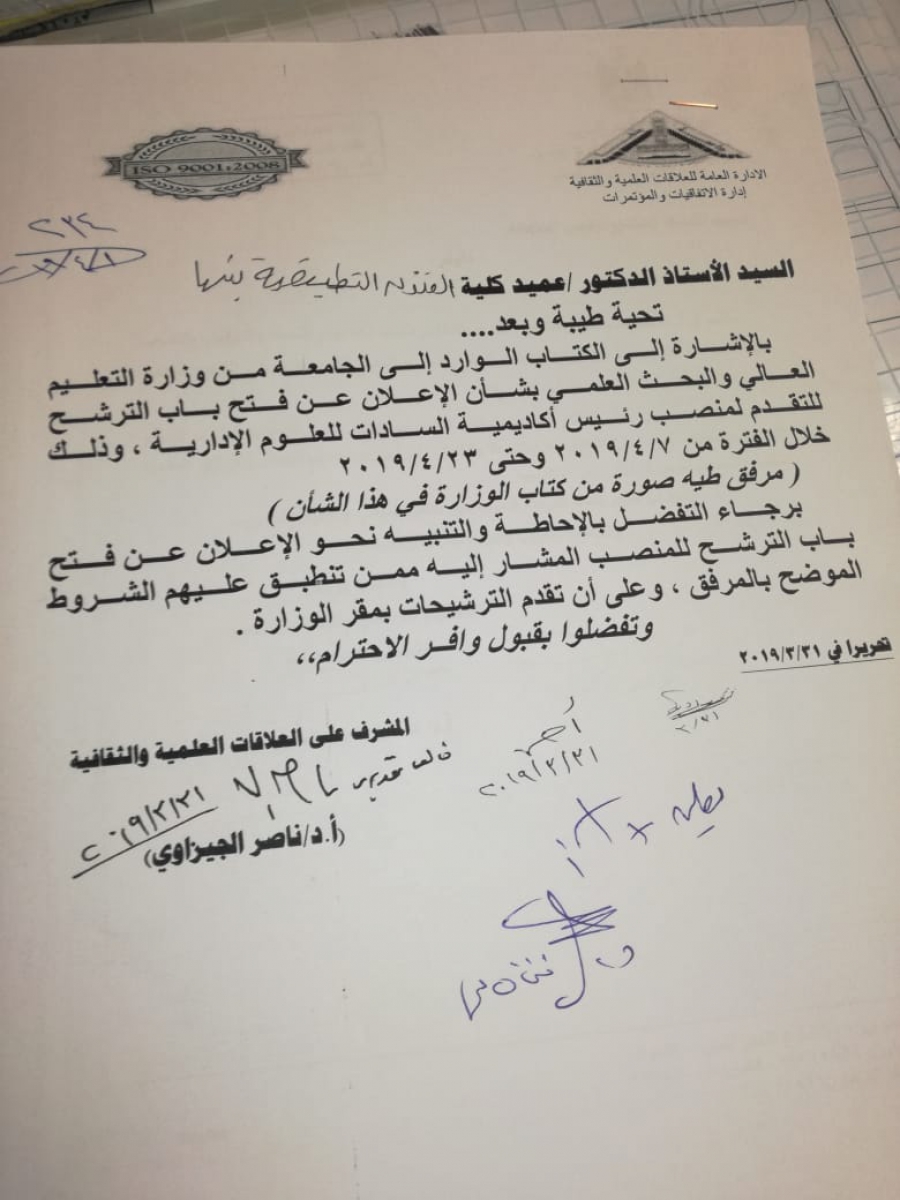 ISO 9001:2008
الادارة العامة للعلاقات العلمية والثقافية
إدارة الاتفاقيات والمؤتمرات
٢٣٤
السيد الأستاذ الدكتور /عميد كلية الفنون التطبيقية بنها
تحية طيبة وبعد....
بالإشارة إلى الكتاب الوارد إلى الجامعة من وزارة التعليم
العالي والبحث العلمي بشأن الإعلان عن فتح باب الترشح
للتقدم لمنصب رئيس أكاديمية السادات للعلوم الإدارية ، وذلك
خلال الفترة من ٢٠١٩/٤/٧ وحتى ٢٠١٩/٤/٢٣
( مرفق طيه صورة من كتاب الوزارة في هذا الشأن )
برجاء التفضل بالإحاطة والتنبيه نحو الإعلان عن فتح
باب الترشح للمنصب المشار إليه ممن تنطبق عليهم الشروط
الموضح بالمرفق ، وعلى أن تقدم الترشيحات بمقر الوزارة .
وتفضلوا بقبول وافر الاحترام،،
تحريرا في ٢٠١٩/٣/٣١
المشرف على العلاقات العلمية والثقافية
٢٠١٩/٣/٣١
٢٠١٩/٣/٣١
٣/٣١
(أ.د/ناصر الجيزاوي)